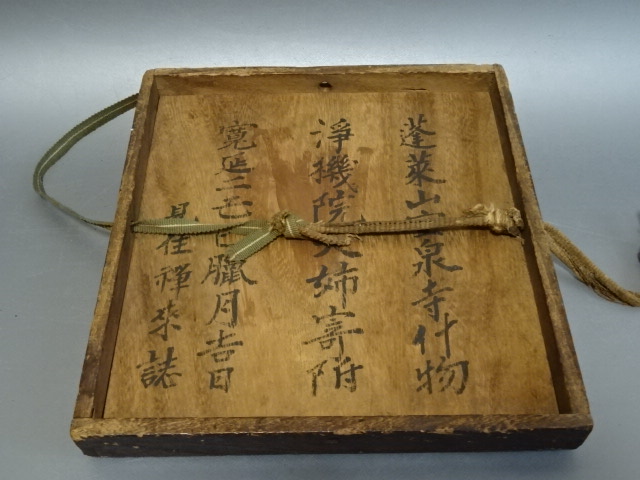 蓬萊山泉寺什物
淨機院大姉寄附
寛延二己巳臘月吉日
見住禅誌